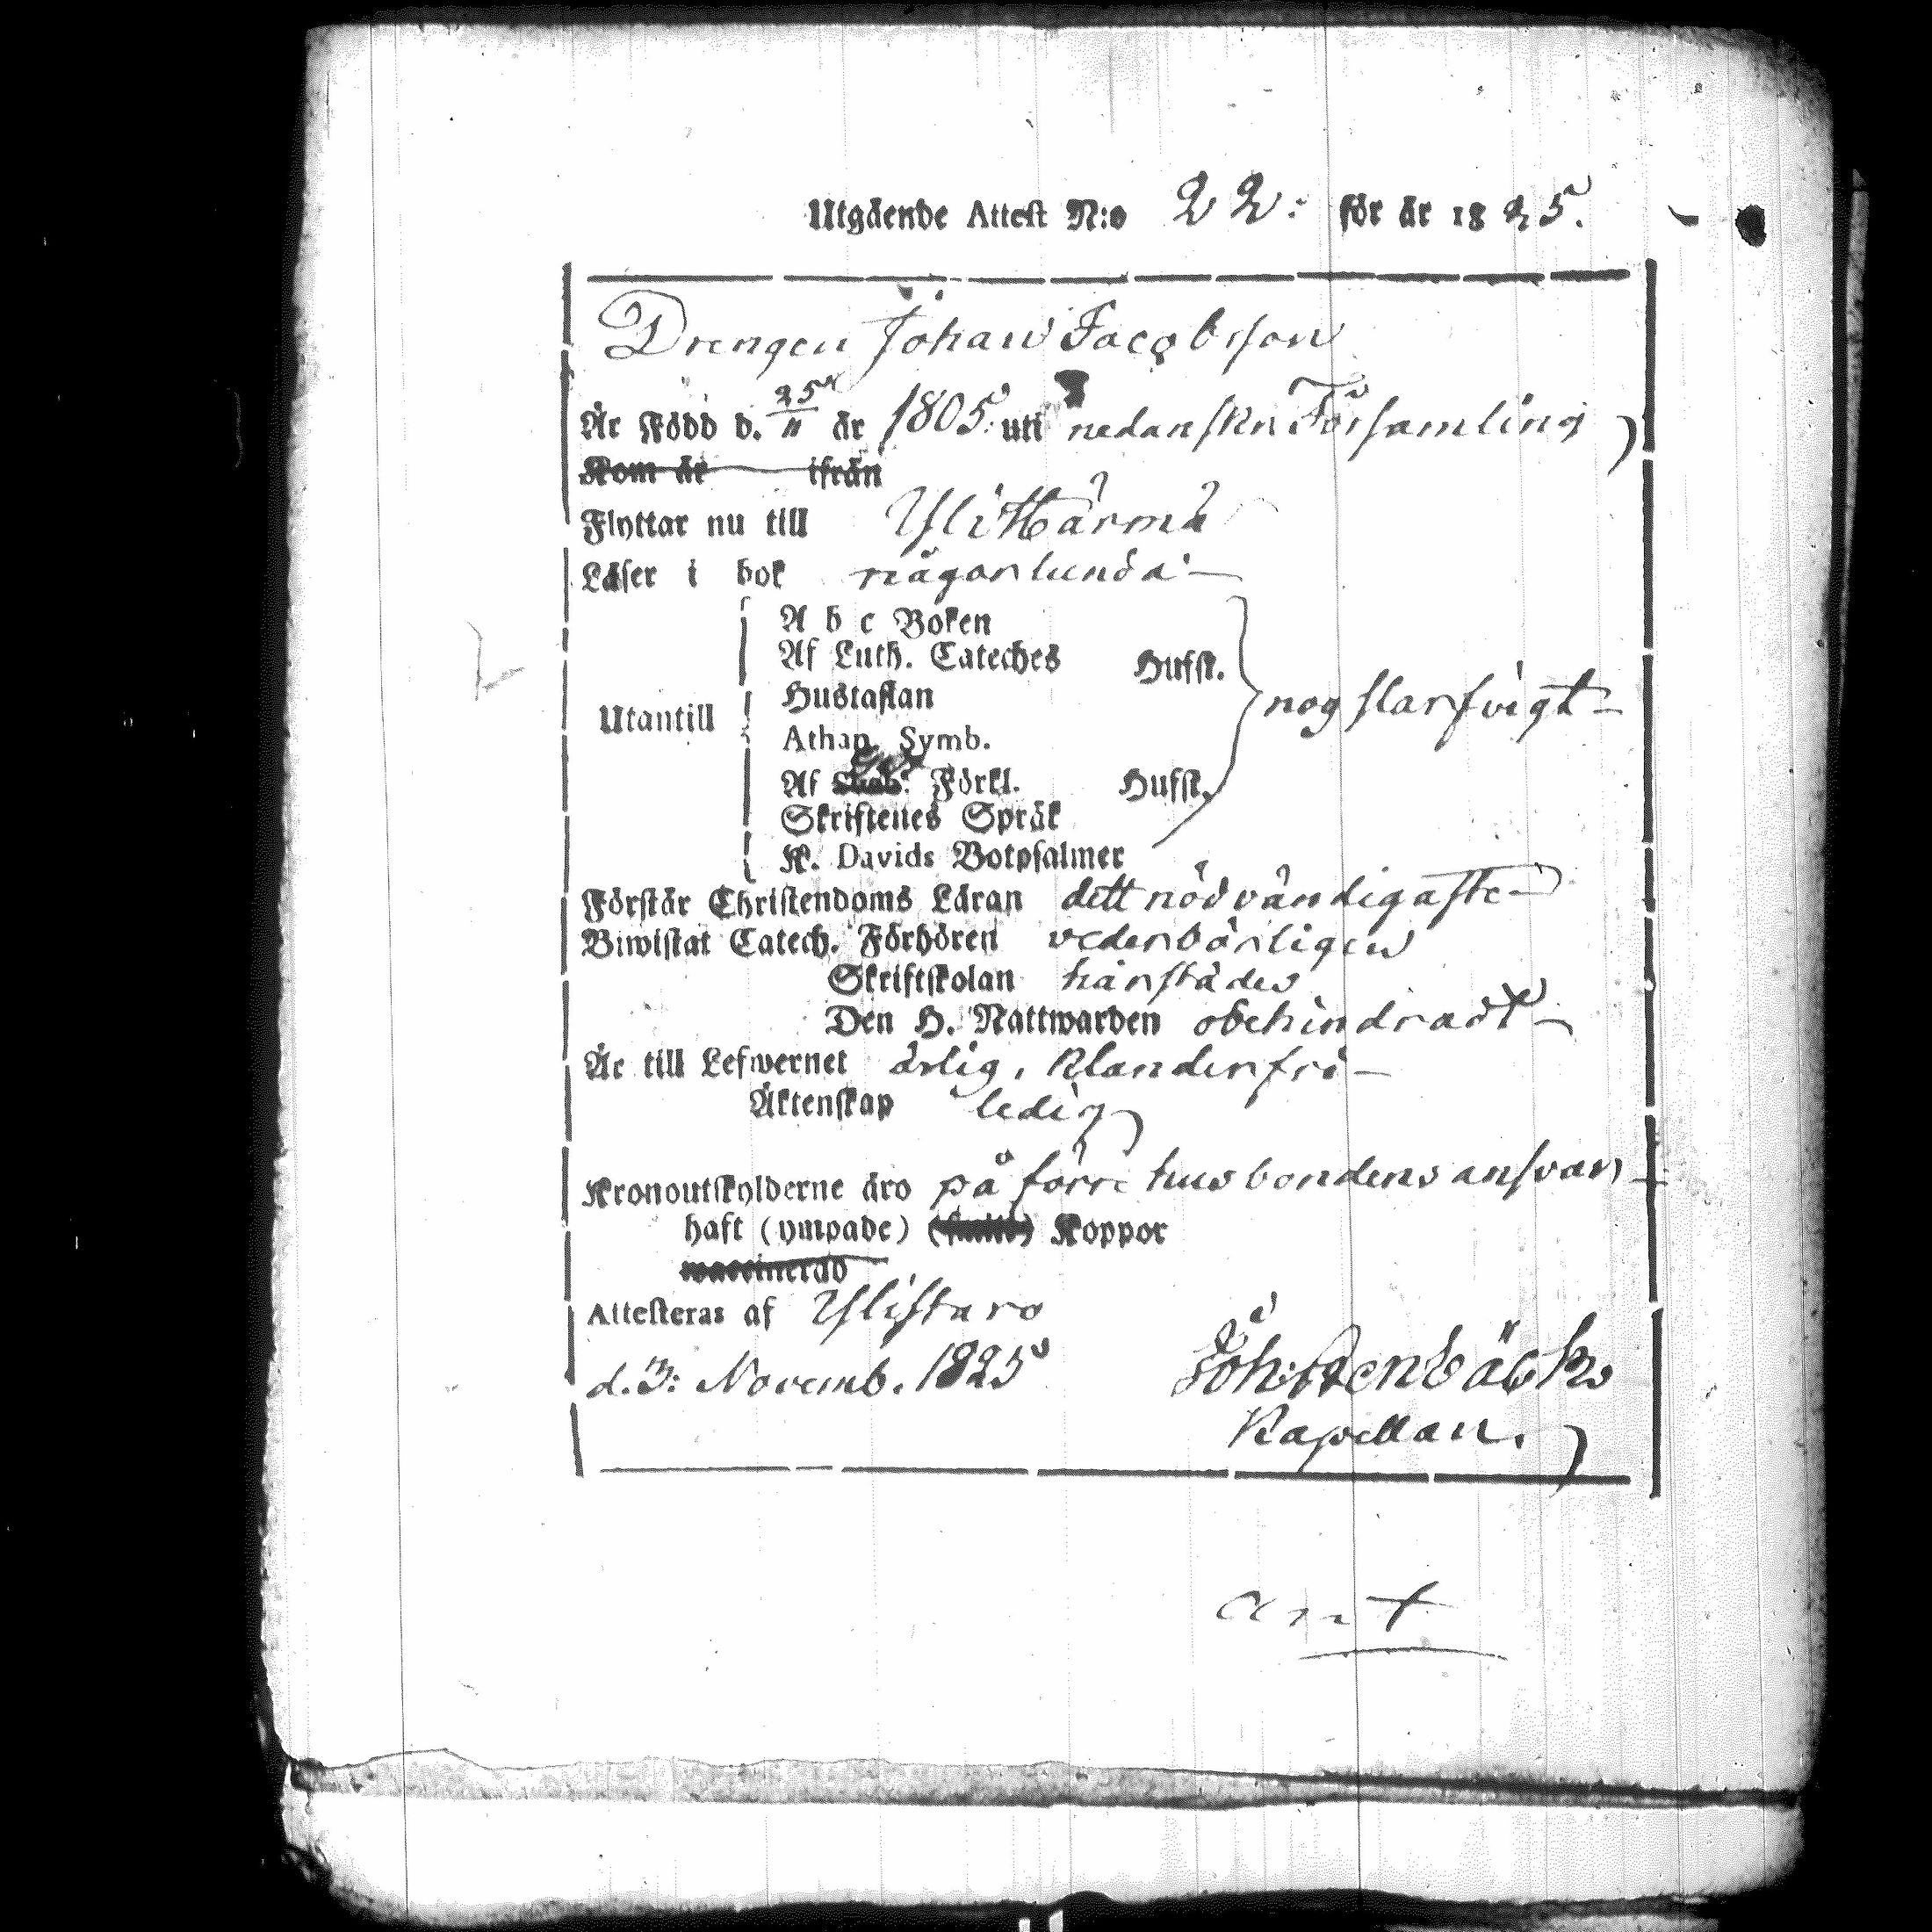 Utgående Attest N:o 22: för år 1825.
Drengen Johan Jacobsson
År Född d. 25/11 år 1805. uti nedanskr. Församling
Kom år ifrån
Flyttar nu till Ylihärmä
Läser i bok någorlunda
A b c Boken
Af Luth. Cateches Hufst.
Hustaflan
Utantill nog slarfvigt
Athan. Symb.
Af Förkl. Hufst.
Skriftenes Språk
K. Davids Botpsalmer
Förstår Christendoms Läran dett nödvändigaste
Biwistat Catech. Förhören vederbörligen
Skriftskolan härstädes
Den H. Nattwarden obehindradt
Är till Lefwernet ärlig, klanderfri
Äktenskap ledig
Kronoutskylderne äro på förre husbondens ansvar
haft (ympade) Koppor
waccinerad
Attesteras af Ylistaro
d. 3: Novemb. 1825 Joh: Stenbäck
Kapellan.